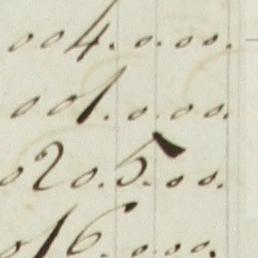 004.0.00.
001.0.00.
020.5.00.
016.0.00.